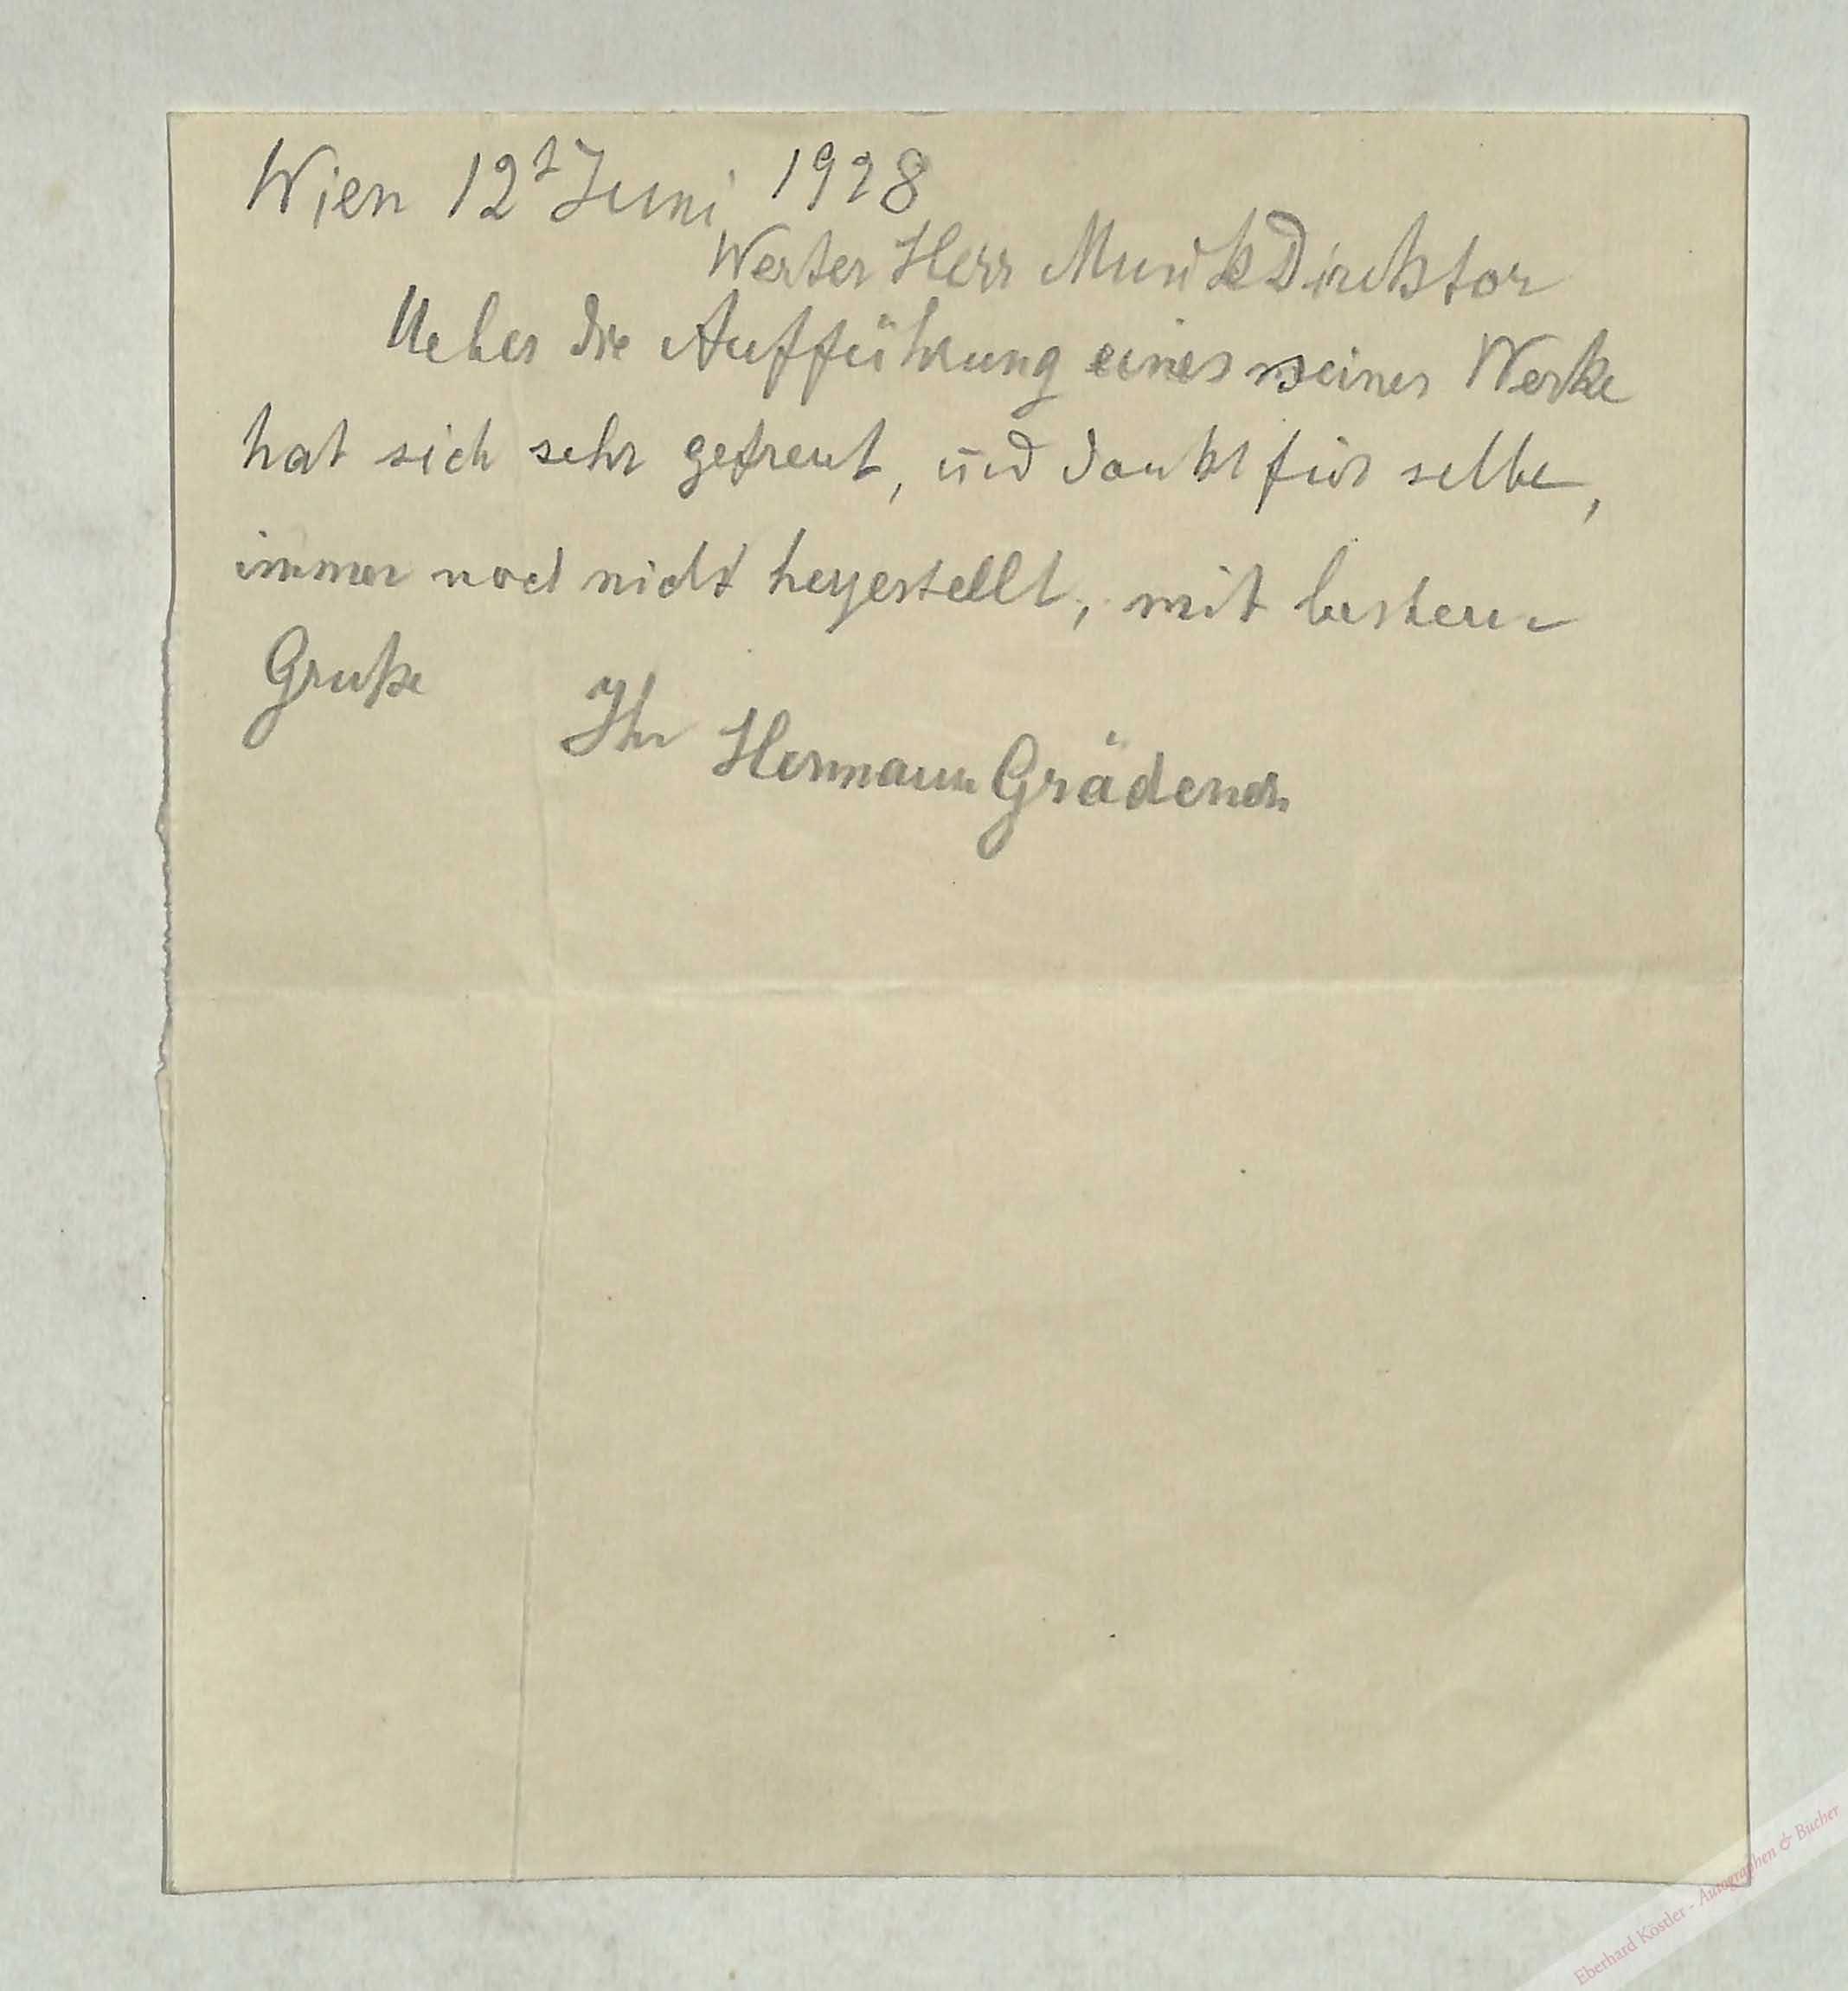 Wien 12t Juni 1928
Werter Herr MusikDirektor
Ueber die Aufführung eines seiner Werke
hat sich sehr gefreut, und dankt für selbe,
immer noch nicht hergestellt, mit bestem
Gruße
Ihr Hermann Grädener
Eberhard Köstler - Autographen & Bücher